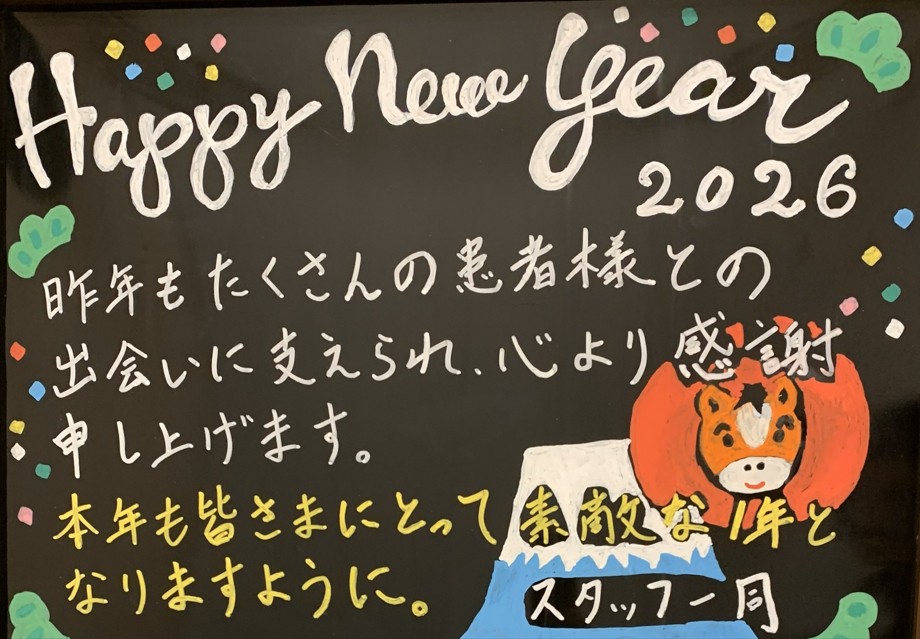 Happy New Year
2026
昨年もたくさんの患者様との
出会いに支えられ、心より感謝
申し上げます。
本年も皆さまにとって素敵な1年と
なりますように。
スタッフ一同